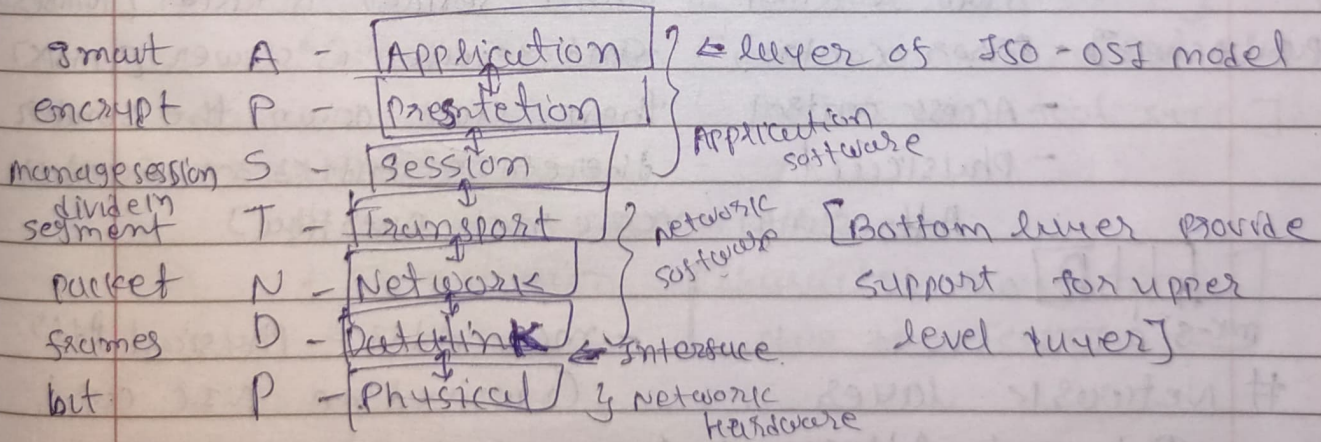 smart A - Application } ← layer of ISO-OSI model
encrypt P - Presntetion
Application
software
managesession S - Session
dividein
segment T - Transport } network
software
[Bottom layer provide
packet N - Network
support for upper
frames D - Datalink ← Interface.
level layer]
bit P - Physical } Network
Hardware